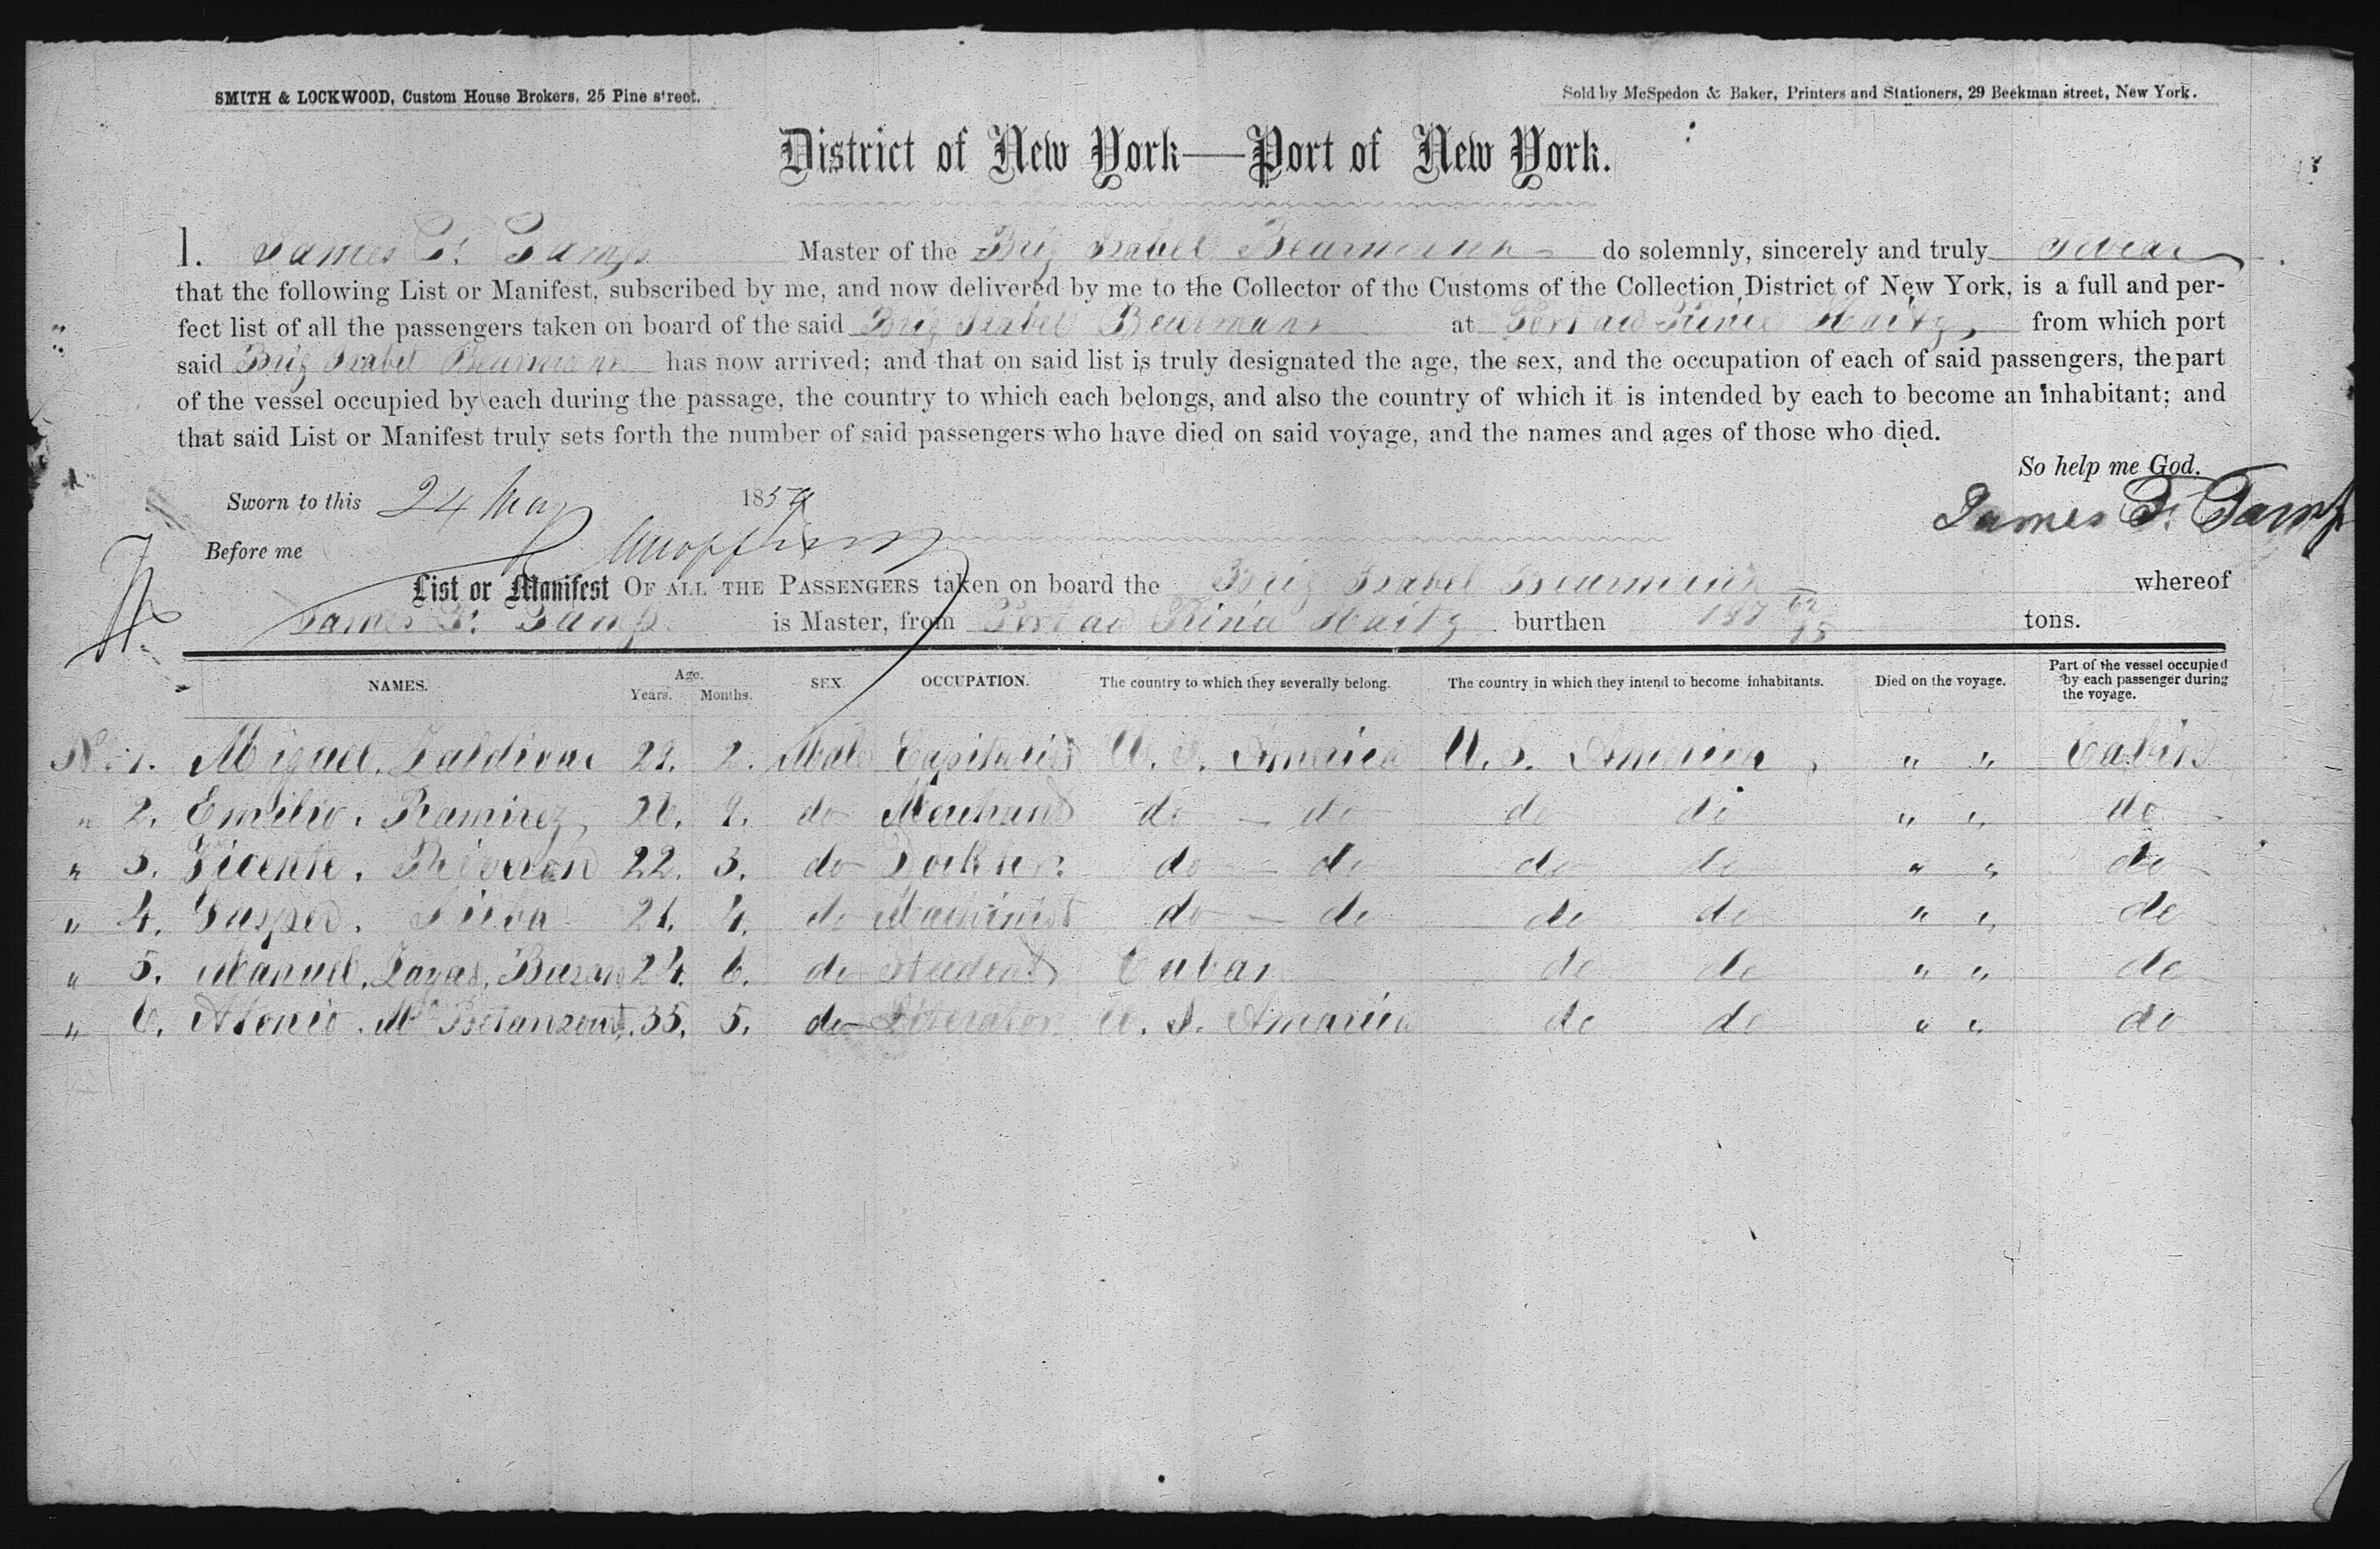 SMITH & LOCKWOOD, Custom House Brokers, 25 Pine street.
Sold by McSpedon & Baker, Printers and Stationers, 29 Beekman street, New York.
District of New York—Port of New York.
I. James F. Tamp Master of the Brig Isabel Beurmann do solemnly, sincerely and truly swear
that the following List or Manifest, subscribed by me, and now delivered by me to the Collector of the Customs of the Collection District of New York, is a full and per-
fect list of all the passengers taken on board of the said Brig Isabel Beurmann at Port au Prince Haity, from which port
said Brig Isabel Beurmann has now arrived; and that on said list is truly designated the age, the sex, and the occupation of each of said passengers, the part
of the vessel occupied by each during the passage, the country to which each belongs, and also the country of which it is intended by each to become an inhabitant; and
that said List or Manifest truly sets forth the number of said passengers who have died on said voyage, and the names and ages of those who died.
So help me God.
Sworn to this 24 May 1859 James F. Tamp
Before me
List or Manifest OF ALL THE PASSENGERS taken on board the Brig Isabel Beurmann whereof
James F. Tamp is Master, from Port au Prince Haity burthen 187 62/95 tons.
NAMES. Age. Years. Months. SEX. OCCUPATION. The country to which they severally belong. The country in which they intend to become inhabitants. Died on the voyage. Part of the vessel occupied by each passenger during the voyage.
No. 1. Miguel. Zaldivar 22. 2. Male Capitalist U. S. America U. S. America, " " Cabin
" 2. Emilio. Ramirez, 26. 9. do Merchant do - do do do " " do
" 3. Vicente. 22. 3. do Docktor. do - do do do " " do
" 4. Gasper. Silva 21. 4. do Machinist do - do do do " " do
" 5. Manuel. Zayas. Bazan 24. 6. do Student Cuban do do " " do
" 6. Atonio. Ma Betanzourt. 35. 5. do Literator U. S. America do do " " do